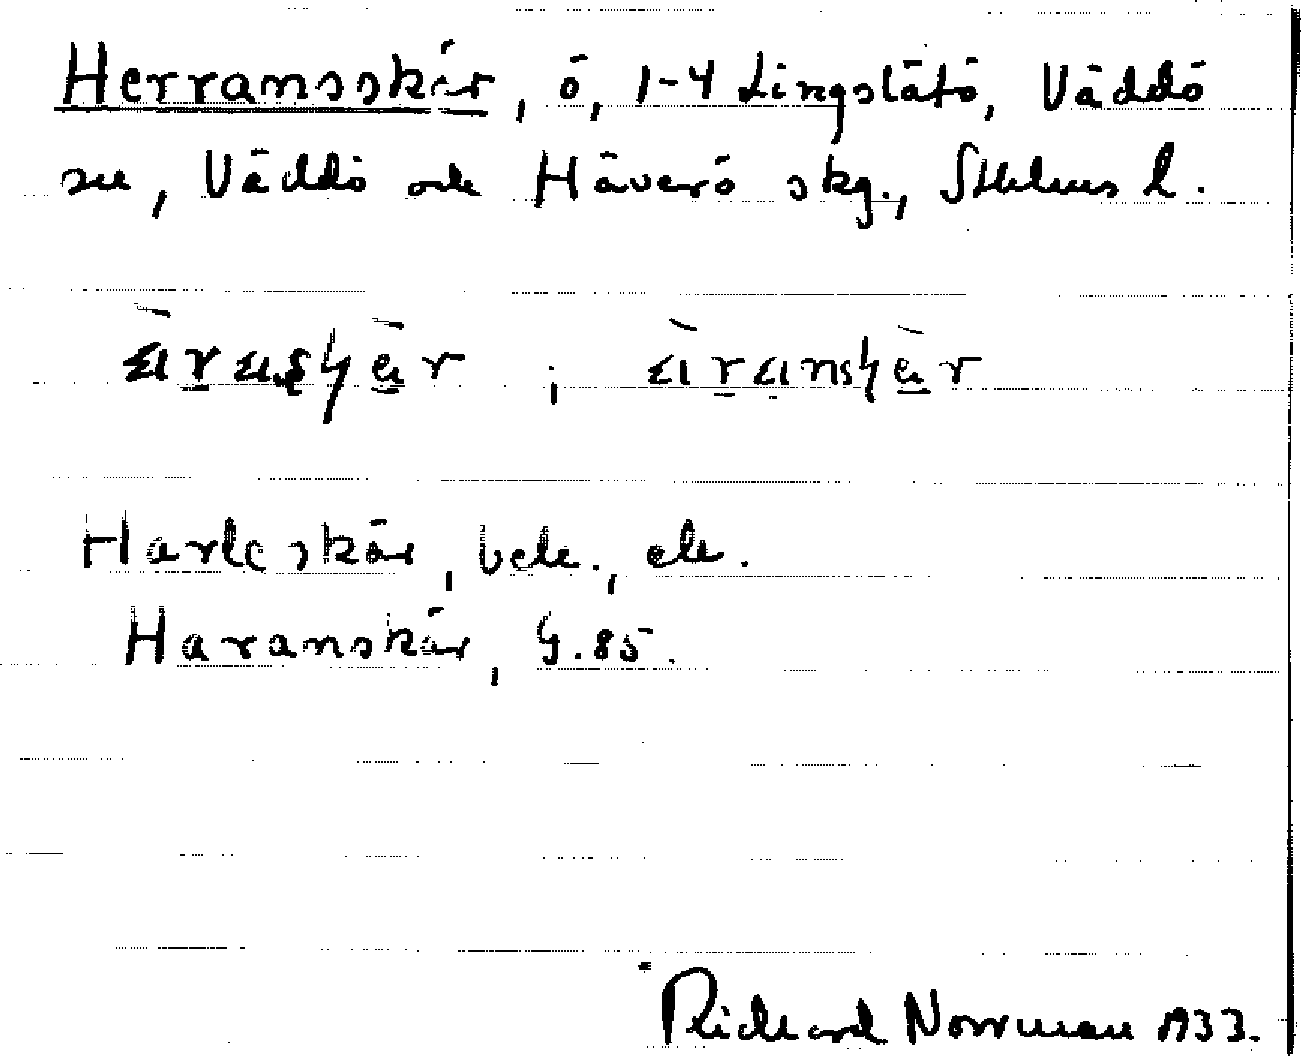 Herransskär, ö, 1-4 Lingslätö, Väddö
sn, Väddö och Häverö skg., Sthlms l.
àranskär, àranskär
Harleskär, bek., ek.
Haranskär, G. 85.
Rickard Norrman 1933.